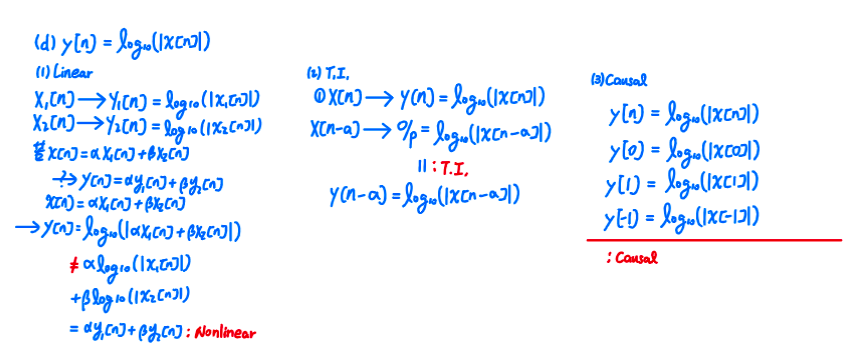 (d) y[n] = log₁₀(|x[n]|)
(1) Linear
x₁[n] → y₁[n] = log₁₀(|x₁[n]|)
x₂[n] → y₂[n] = log₁₀(|x₂[n]|)
x[n] = αx₁[n] + βx₂[n]
→? y[n] = αy₁[n] + βy₂[n]
x[n] = αx₁[n] + βx₂[n]
→ y[n] = log₁₀(|αx₁[n] + βx₂[n]|)
≠ αlog₁₀(|x₁[n]|)
+βlog₁₀(|x₂[n]|)
= αy₁[n] + βy₂[n] : Nonlinear
(2) T.I.
① x[n] → y[n] = log₁₀(|x[n]|)
x[n-a] → o/p = log₁₀(|x[n-a]|)
|| : T.I.
y[n-a] = log₁₀(|x[n-a]|)
(3) Causal
y[n] = log₁₀(|x[n]|)
y[0] = log₁₀(|x[0]|)
y[1] = log₁₀(|x[1]|)
y[-1] = log₁₀(|x[-1]|)
: Causal